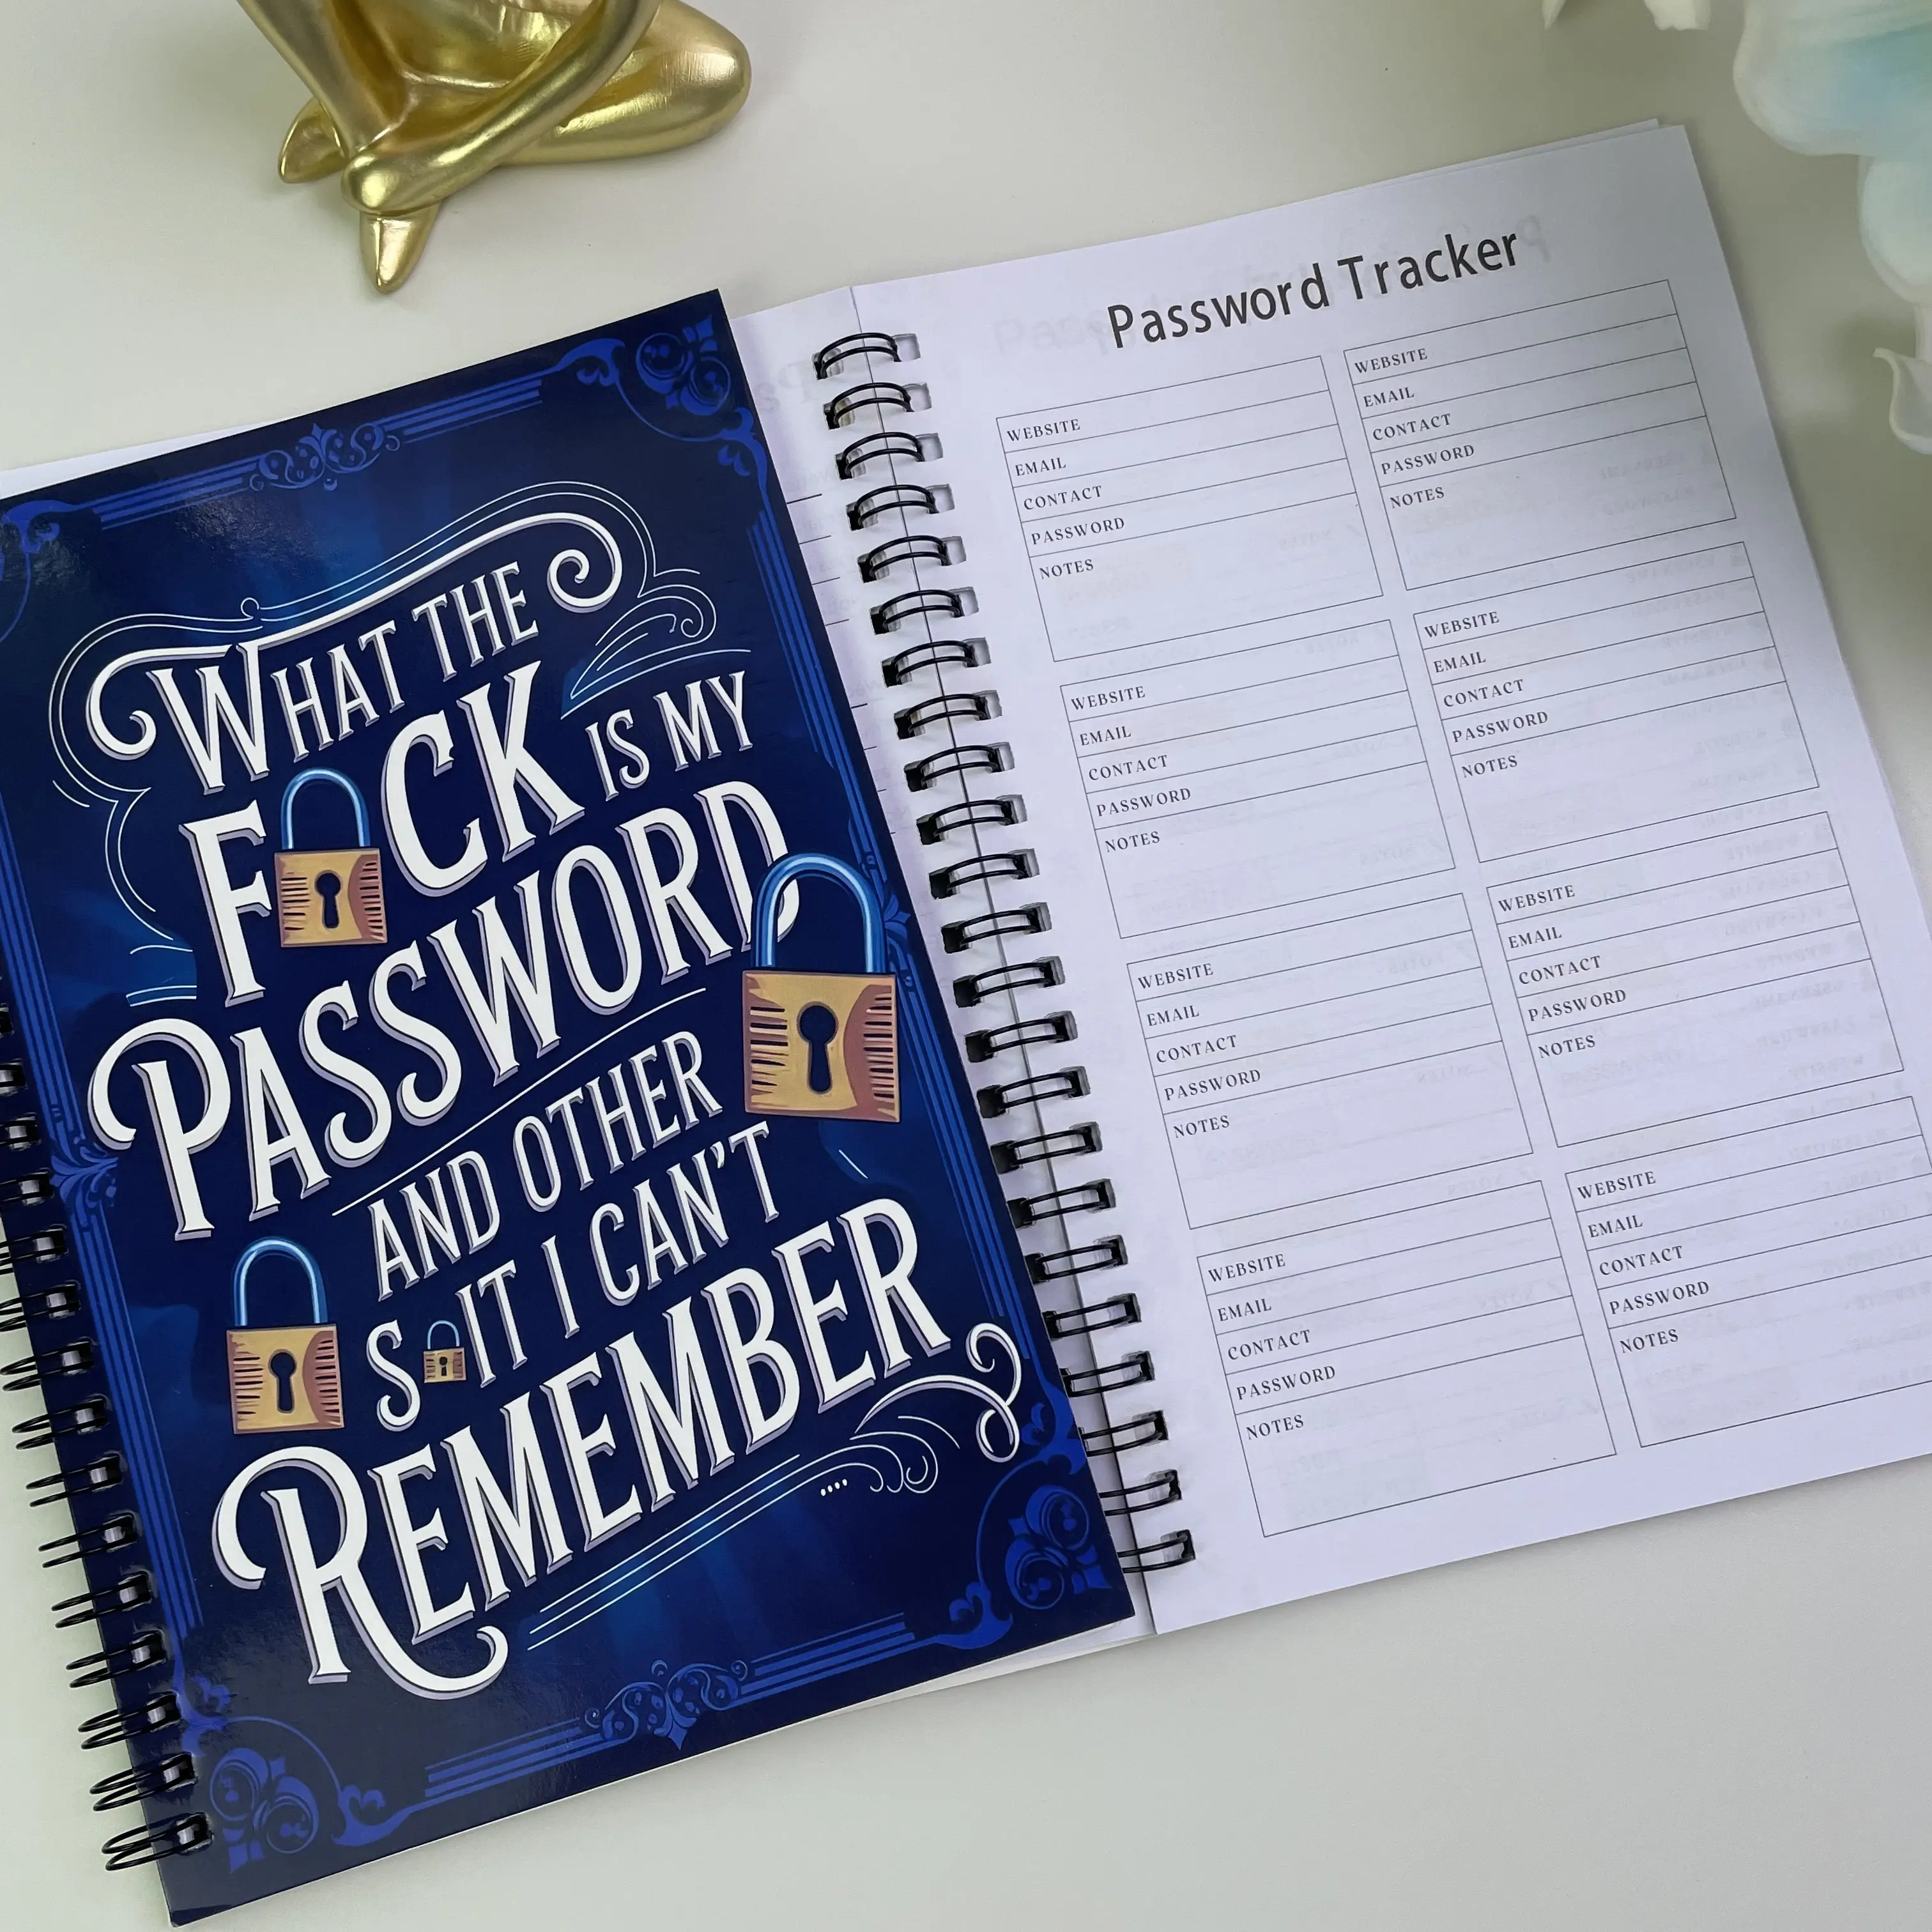 WHAT THE
F CK IS MY
PASSWORD
AND OTHER
S IT I CAN'T
REMEMBER
....
Password Tracker
WEBSITE
EMAIL
CONTACT
PASSWORD
NOTES
WEBSITE
EMAIL
CONTACT
PASSWORD
NOTES
WEBSITE
EMAIL
CONTACT
PASSWORD
NOTES
WEBSITE
EMAIL
CONTACT
PASSWORD
NOTES
WEBSITE
EMAIL
CONTACT
PASSWORD
NOTES
WEBSITE
EMAIL
CONTACT
PASSWORD
NOTES
WEBSITE
EMAIL
CONTACT
PASSWORD
NOTES
WEBSITE
EMAIL
CONTACT
PASSWORD
NOTES